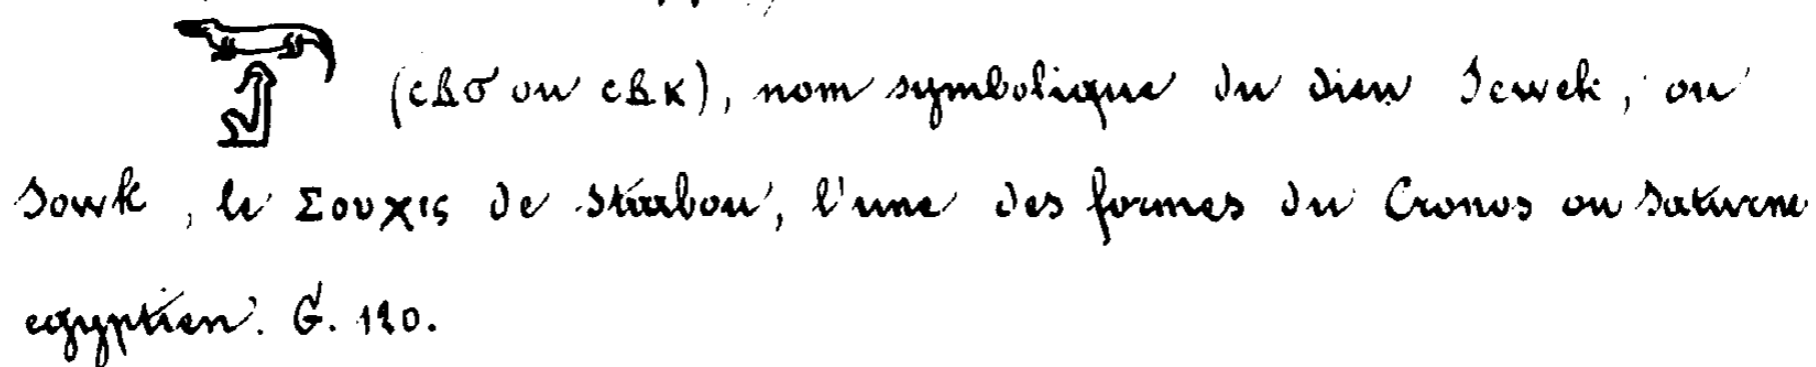 (ⲥⲃϭ ou ⲥⲃⲕ), nom symbolique du dieu Sewek, ou
Sowk, le Σουχις de Strabon, l'une des formes du Cronos ou Saturne
egyptien. G. 120.